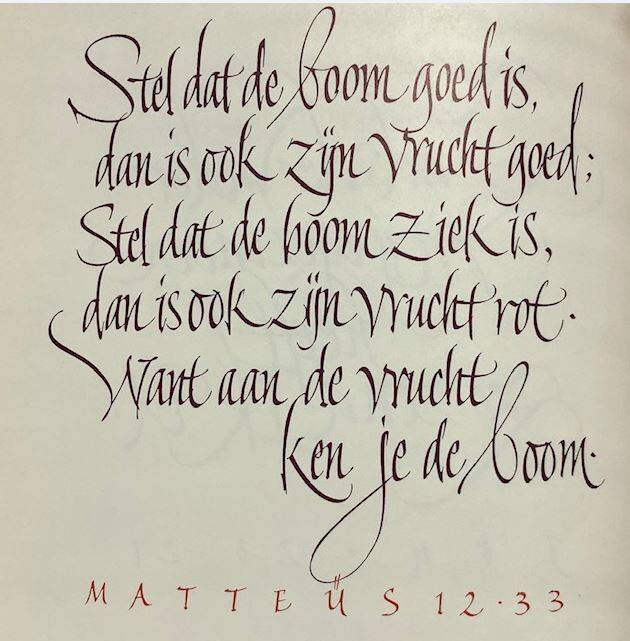 Stel dat de boom goed is,
dan is ook zijn vrucht goed;
Stel dat de boom ziek is,
dan is ook zijn vrucht rot.
Want aan de vrucht
ken je de boom.
MATTEÜS 12.33